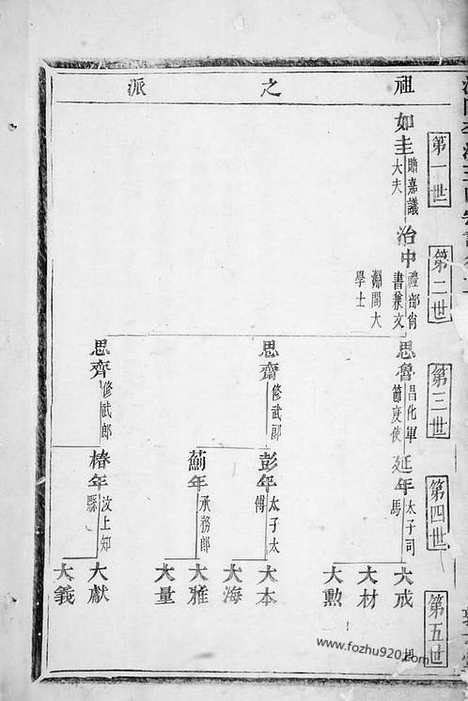 祖之派
第一世
第二世
第三世
第四世
第五世
如圭
贈嘉議
大夫
治中
禮部尚
書兼文
淵閣大
學士
思魯
昌化軍
節度使
延年
太子司
馬
大成
大材
大勲
思齋
修武郎
彭年
太子太
傅
大本
大海
薊年
承務郎
大雅
大量
思齊
修武郎
椿年
汶上知
縣
大獻
大義
www.fozhu920.com